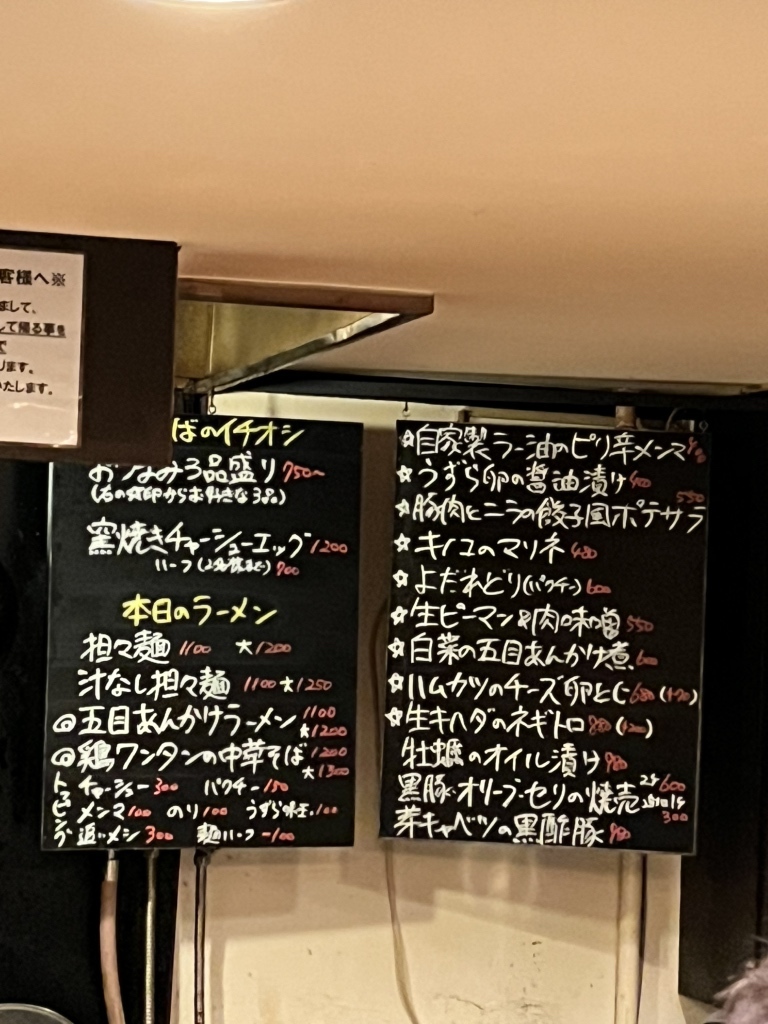 客様へ※
まして、
して帰る事を
で
ります。
いたします。
ばのイチオシ
おつまみ3品盛り 750〜
(右の☆印からお好きな3品)
窯焼きチャーシューエッグ 1200
ハーフ 700
本日のラーメン
担々麺 1100 大1200
汁なし担々麺 1100 大1250
◎五目あんかけラーメン 1100
大1200
◎鶏ワンタンの中華そば 1200
大1300
トッピング
チャーシュー 300 パクチー 150
メンマ 100 のり 100 うずら味玉 100
追いメシ 300 麺ハーフ -100
☆自家製ラー油のピリ辛メンマ
☆うずら卵の醤油漬け 400
☆豚肉とニラの餃子風ポテサラ 550
☆キノコのマリネ 480
☆よだれどり(パクチー) 600
☆生ピーマン&肉味噌 550
☆白菜の五目あんかけ煮 600
☆ハムカツのチーズ卵とじ 680
☆生キハダのネギトロ 980 (+200)
牡蠣のオイル漬け 980
黒豚・オリーブ・セリの焼売 2ケ 600
300
芽キャベツの黒酢豚 980